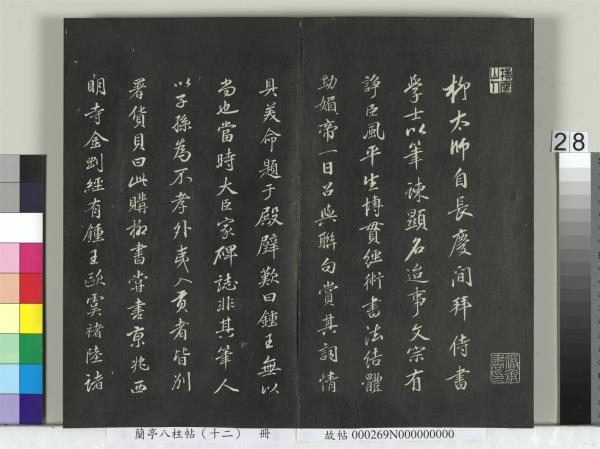 柳太師自長慶間拜侍書
學士以筆諫顯名迨事文宗有
諍臣風平生博貫經術書法結體
勁媚帝一日召與聯句賞其詞情
具美命題于殿壁歎曰鍾王無以
尚也當時大臣家碑誌非其筆人
以子孫為不孝外夷入貢者皆別
署貨貝曰此購柳書嘗書京兆西
明寺金剛經有鍾王歐虞褚陸諸
28
蘭亭八柱帖(十二) 冊
故帖 000269N000000000